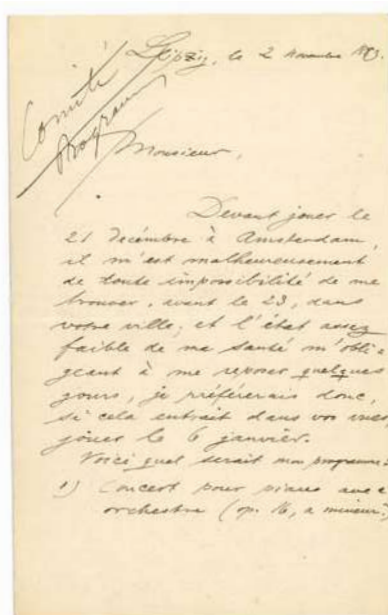 Leipzig, le 2 novembre 1883.
Comité
Programme
Monsieur,
Devant jouer le
21 décembre à Amsterdam,
il m'est malheureusement
de toute impossibilité de me
trouver, avant le 23, dans
votre ville; et l'état assez
faible de ma santé m'obli-
geant à me reposer quelques
jours, je préférerais donc,
si cela entrait dans vos vues,
jouer le 6 janvier.
Voici quel serait mon programme:
1) Concert pour piano avec
orchestre (op. 16, a mineur)